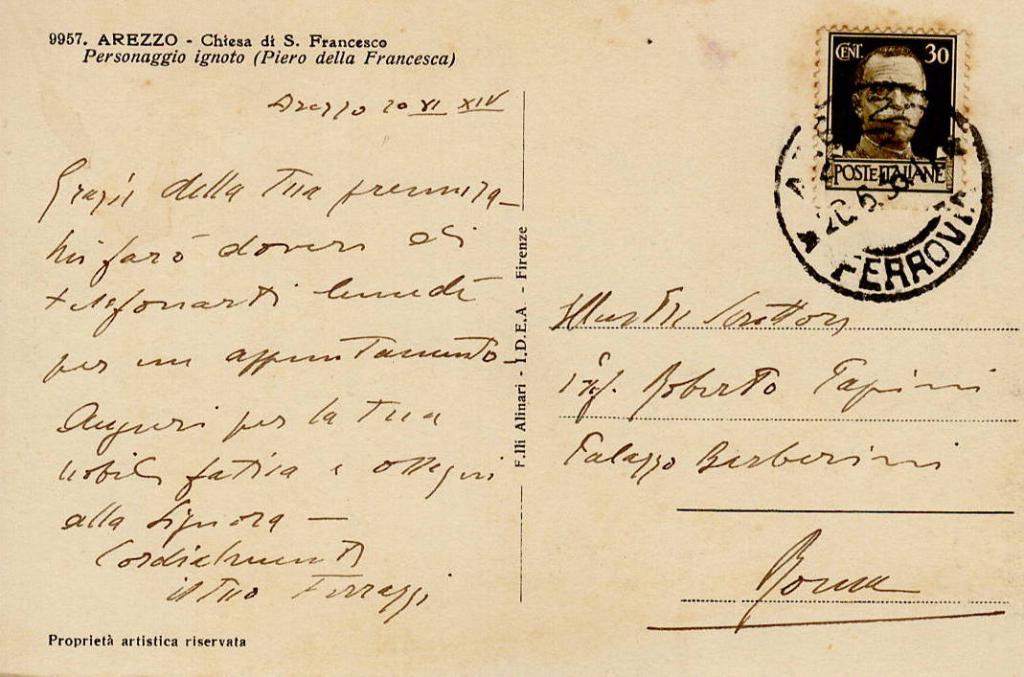 9957. AREZZO - Chiesa di S. Francesco
Personaggio ignoto (Piero della Francesca)
Arezzo 20 VI XIV
Grazie della Tua premura -
Mi farò dovere di
telefonarti lunedì
per un appuntamento
Auguri per la Tua
nobile fatica e ossequi
alla Signora -
Cordialmente
il Tuo
Proprietà artistica riservata
F.lli Alinari - I.D.E.A. - Firenze
CENT. 30
POSTE ITALIANE
20.6.
FERROVIA
Illustre Scrittore
Prof. Roberto Papini
Palazzo Barberini
Roma